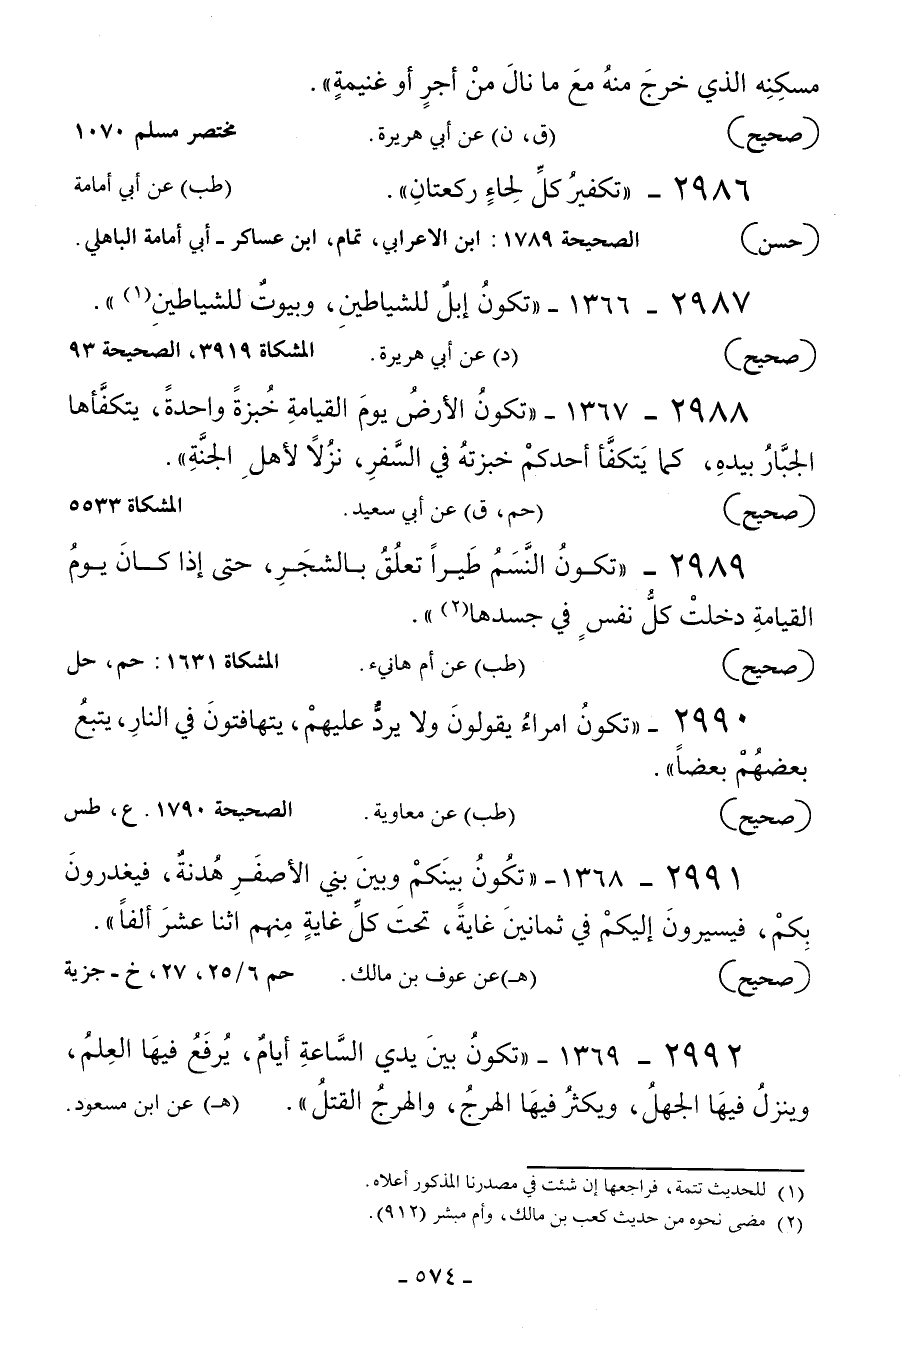 مسكِنِه الذي خرجَ منهُ معَ ما نالَ منْ أجرٍ أو غنيمةٍ» .
(صحيح) (ق، ن) عن أبي هريرة. مختصر مسلم ١٠٧٠
٢٩٨٦ ـ «تكفيرُ كلِّ لِحاءٍ ركعتانِ» . (طب) عن أبي أمامة
(حسن) الصحيحة ١٧٨٩ : ابن الاعرابي، تمام، ابن عساكر ـ أبي أمامة الباهلي.
٢٩٨٧ ـ ١٣٦٦ ـ «تكونُ إبلٌ للشياطينِ، وبيوتٌ للشياطينِ(١) » .
(صحيح) (د) عن أبي هريرة. المشكاة ٣٩١٩، الصحيحة ٩٣
٢٩٨٨ ـ ١٣٦٧ ـ «تكونُ الأرضُ يومَ القيامةِ خُبزةً واحدةً، يتكفَّأها
الجبَّارُ بيدهِ، كما يَتكفَّأ أحدكمْ خبزتهُ في السَّفرِ، نزُلاً لأهلِ الجنَّةِ» .
(صحيح) (حم، ق) عن أبي سعيد. المشكاة ٥٥٣٣
٢٩٨٩ ـ «تكـونُ النَّسَمُ طَيـراً تعلُقُ بـالشجَـرِ، حتى إذا كـانَ يـومُ
القيامةِ دخلتْ كلُّ نفسٍ في جسدها(٢) » .
(صحيح) (طب) عن أم هانيء. المشكاة ١٦٣١ : حم، حل
٢٩٩٠ ـ «تكونُ امراءُ يقولونَ ولا يردُّ عليهمْ، يتهافتونَ في النارِ، يتبعُ
بعضهُمْ بعضاً» .
(صحيح) (طب) عن معاوية. الصحيحة ١٧٩٠ . ع، طس
٢٩٩١ ـ ١٣٦٨ـ «تكُونُ بينَكمْ وبينَ بني الأصفَـرِ هُدنةٌ، فيغدرونَ
بِكمْ، فيسيرونَ إليكمْ في ثمانينَ غايةً، تحتَ كلِّ غايةٍ مِنهم اثنا عشرَ ألفاً» .
(صحيح) (هـ)عن عوف بن مالك. حم ٢٥/٦، ٢٧، خ ـ جزية
٢٩٩٢ ـ ١٣٦٩ ـ «تكونُ بينَ يدي السَّاعةِ أيامٌ، يُرفَعُ فيهَا العِلمُ،
وينزلُ فيهَا الجهلُ، ويكثرُ فيهَا الهرجُ، والهرجُ القتلُ» . (هـ) عن ابن مسعود.
(١) للحديث تتمة، فراجعها إن شئت في مصدرنا المذكور أعلاه.
(٢) مضى نحوه من حديث كعب بن مالك، وأم مبشر (٩١٢).
ـ ٥٧٤ ـ